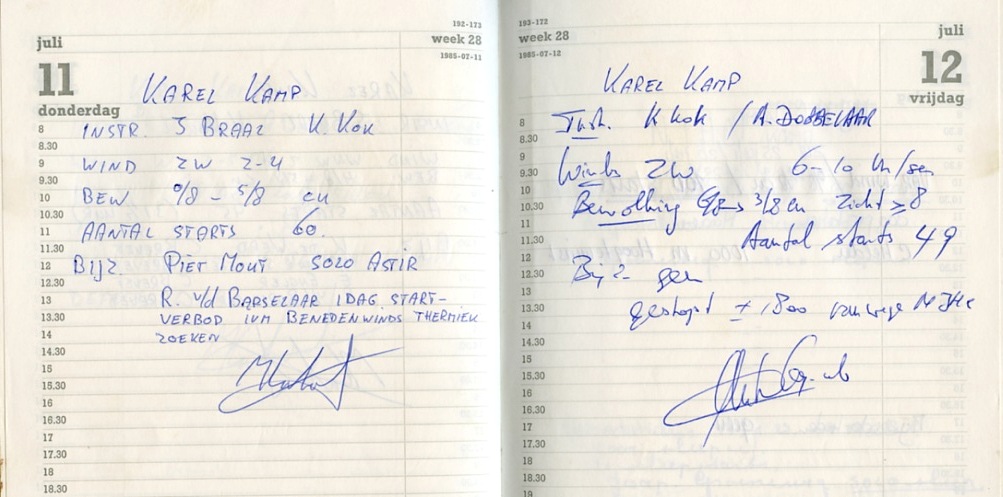 192-173
juli
week 28
1985-07-11
11
donderdag
KAREL KAMP
8
INSTR. J BRAAL K. KOK
8.30
9
WIND ZW 2-4
9.30
10
BEW 0/8 - 5/8 cu
10.30
11
AANTAL STARTS 60.
11.30
12
Bijz. PIET MOUT SOLO ASTIR
12.30
13
R. v/d BARSELAAR 1 DAG START-
13.30
VERBOD IVM BENEDENWINDS THERMIEK
14
ZOEKEN
14.30
15
15.30
16
16.30
17
17.30
18
18.30
193-172
week 28
1985-07-12
juli
12
vrijdag
KAREL KAMP
8
Instr. K Kok / A. DOBBELAAR
8.30
9
Wind ZW 6-10
9.30
10
Bewolking 3/8 cu zicht ≥ 8
10.30
11
Aantal starts 49
11.30
12
Bijz. geen
12.30
13
gestopt ± 1800 vanwege
13.30
14
14.30
15
15.30
16
16.30
17
17.30
18
18.30
19